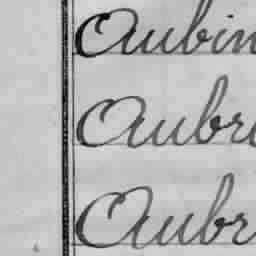 Aubin
Aubre
Aubr